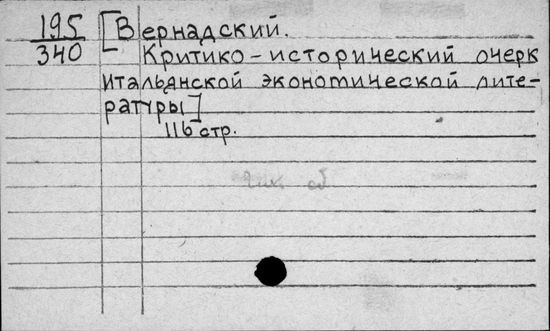 195 [Вернадский.
340 Критико-исторический очерк
итальянской экономической лите-
ратуры]
116 стр.